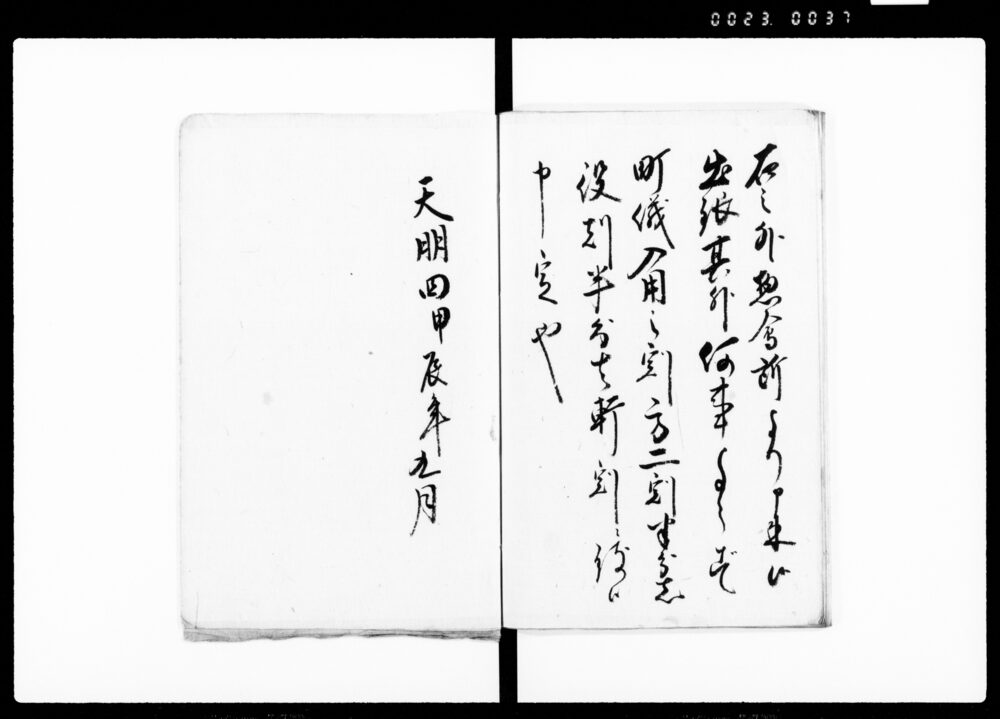 0023. 0037
右之外惣会所より申来候
出銀其外何事よらず
町儀入用之割方二割半分者
役割半分者軒割ニ致候
申定也
天明四甲辰年五月